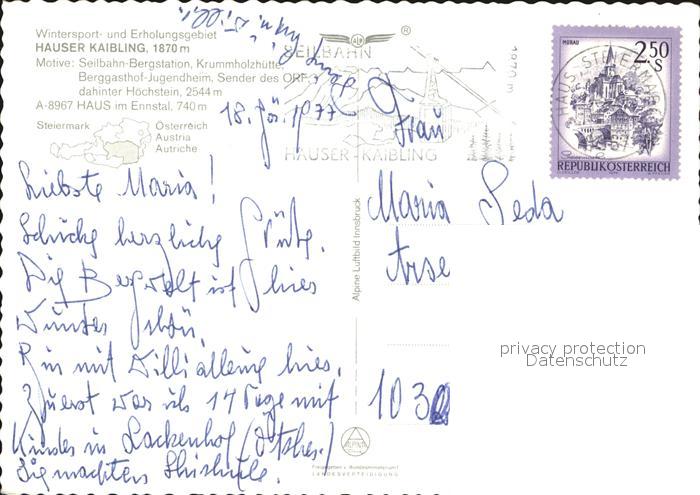 Wintersport- und Erholungsgebiet
HAUSER KAIBLING, 1870 m
Motive: Seilbahn-Bergstation, Krummholzhütte,
Berggasthof-Jugendheim, Sender des ORF,
dahinter Höchstein, 2544 m
A-8967 HAUS im Ennstal, 740 m
Steiermark
Österreich
Austria
Autriche
SEILBAHN
HAUSER-KAIBLING
®
MURAU
2.50
S
REPUBLIK ÖSTERREICH
18. Jän. 1977
Liebste Maria!
Schicke herzliche Grüße.
Die Bergwelt ist hier
wunderschön.
Bin mit Willi allein hier.
Zuerst war ich 14 Tage mit
Kinder in Lackenhof (Ötscher)
Sie machten Skischule.
Frau
Maria Seda
103
Alpine Luftbild Innsbruck
privacy protection
Datenschutz
Freigegeben v. Bundesministerium f.
LANDESVERTEIDIGUNG